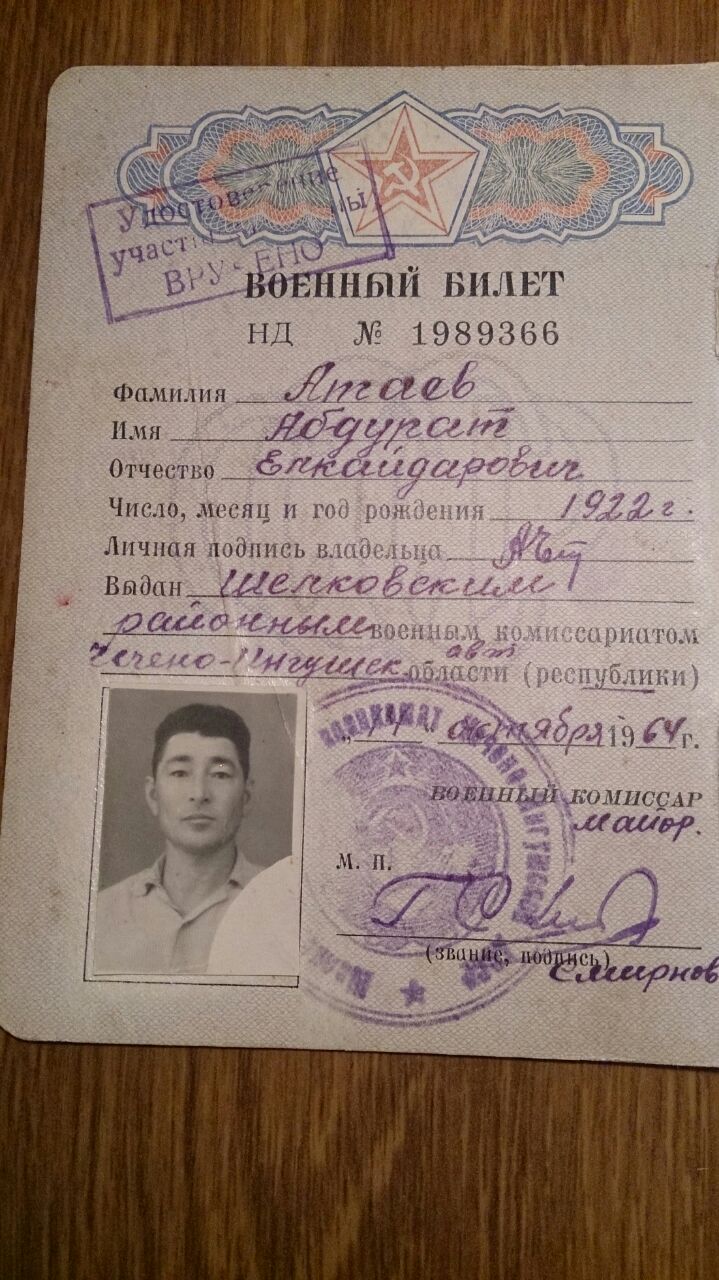 Удостоверение
участника войны
ВРУЧЕНО
ВОЕННЫЙ БИЛЕТ
НД № 1989366
Фамилия Атаев
Имя Абдурат
Отчество Елкайдарович
Число, месяц и год рождения 1922 г.
Личная подпись владельца
Выдан Шелковским
районным военным комиссариатом
Чечено-Ингушск. авт области (республики)
октября 1964 г.
ВОЕННЫЙ КОМИССАР
майор.
М. П.
(звание, подпись)
Смирнов